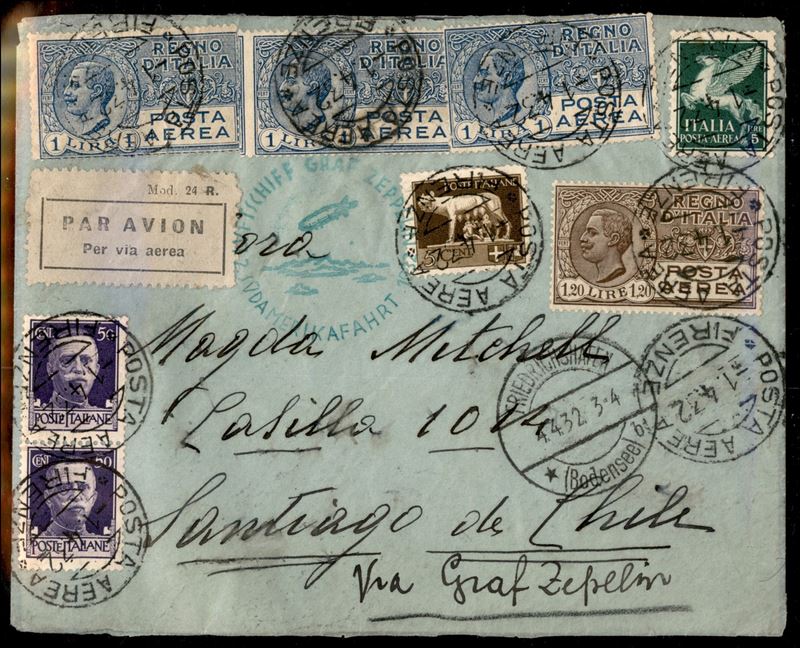 REGNO D'ITALIA
POSTA AEREA
1 LIRE 1
REGNO D'ITALIA
POSTA AEREA
1 LIRE 1
REGNO D'ITALIA
POSTA AEREA
1 LIRE 1
ITALIA
POSTA AEREA
LIRE 5
Mod. 24 R.
PAR AVION
Per via aerea
LUFTSCHIFF GRAF ZEPP
2. SÜDAMERIKAFAHRT
POSTE ITALIANE
5 CENT
REGNO D'ITALIA
POSTA AEREA
1.20 LIRE 1.20
POSTA AEREA FIRENZE
1.4.32
Magda Mitchell
Casilla
Santiago de Chile
Via Graf Zepelin
FRIEDRICHSHAFEN
4.4.32. 3-4
(Bodensee)
CENT. 50
POSTE ITALIANE
CENT. 50
POSTE ITALIANE